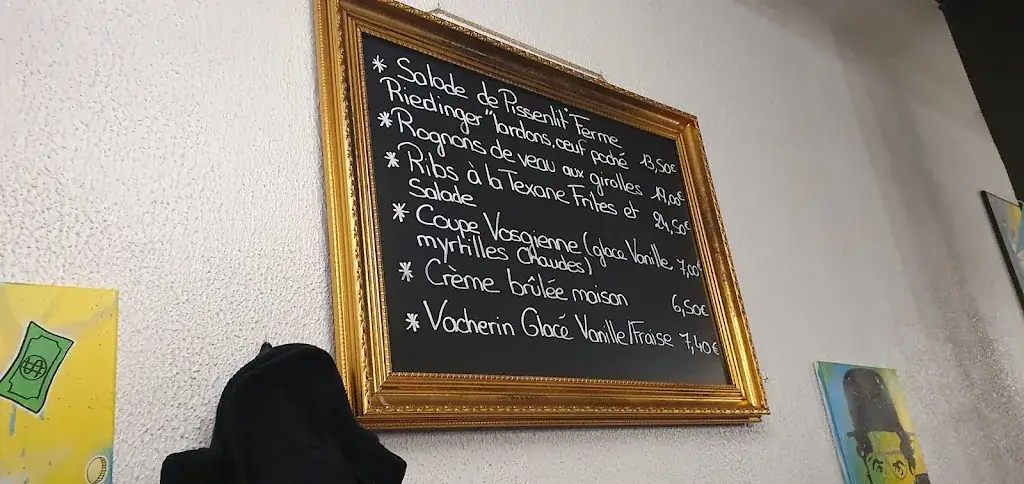 * Salade de Pissenlit "Ferme
Riedinger" lardons, œuf poché 13,50€
* Rognons de veau aux girolles 19,00€
* Ribs à la Texane Frites et 24,50€
Salade
* Coupe Vosgienne (glace Vanille 7,00€
myrtilles Chaudes)
* Crème brûlée maison 6,50€
* Vacherin Glacé Vanille/Fraise 7,40€